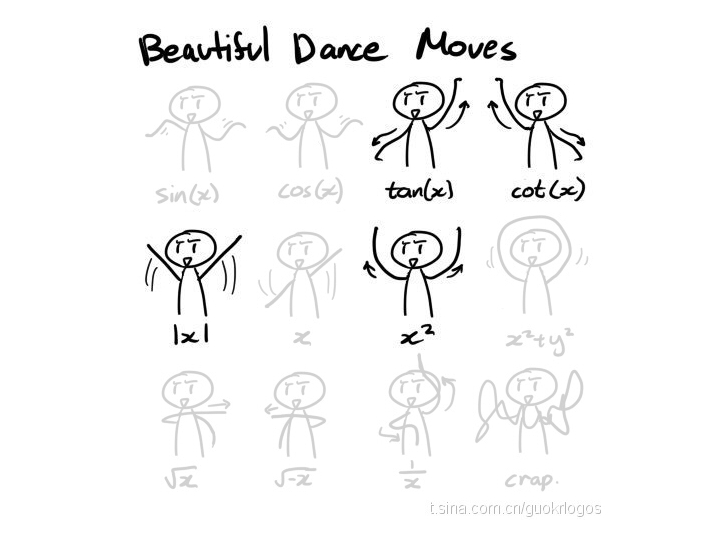 Beautiful Dance Moves
sin(x) cos(x) tan(x) cot(x)
|x| x x² x²+y²
√x √-x 1/x crap.
t.sina.com.cn/guokrlogos